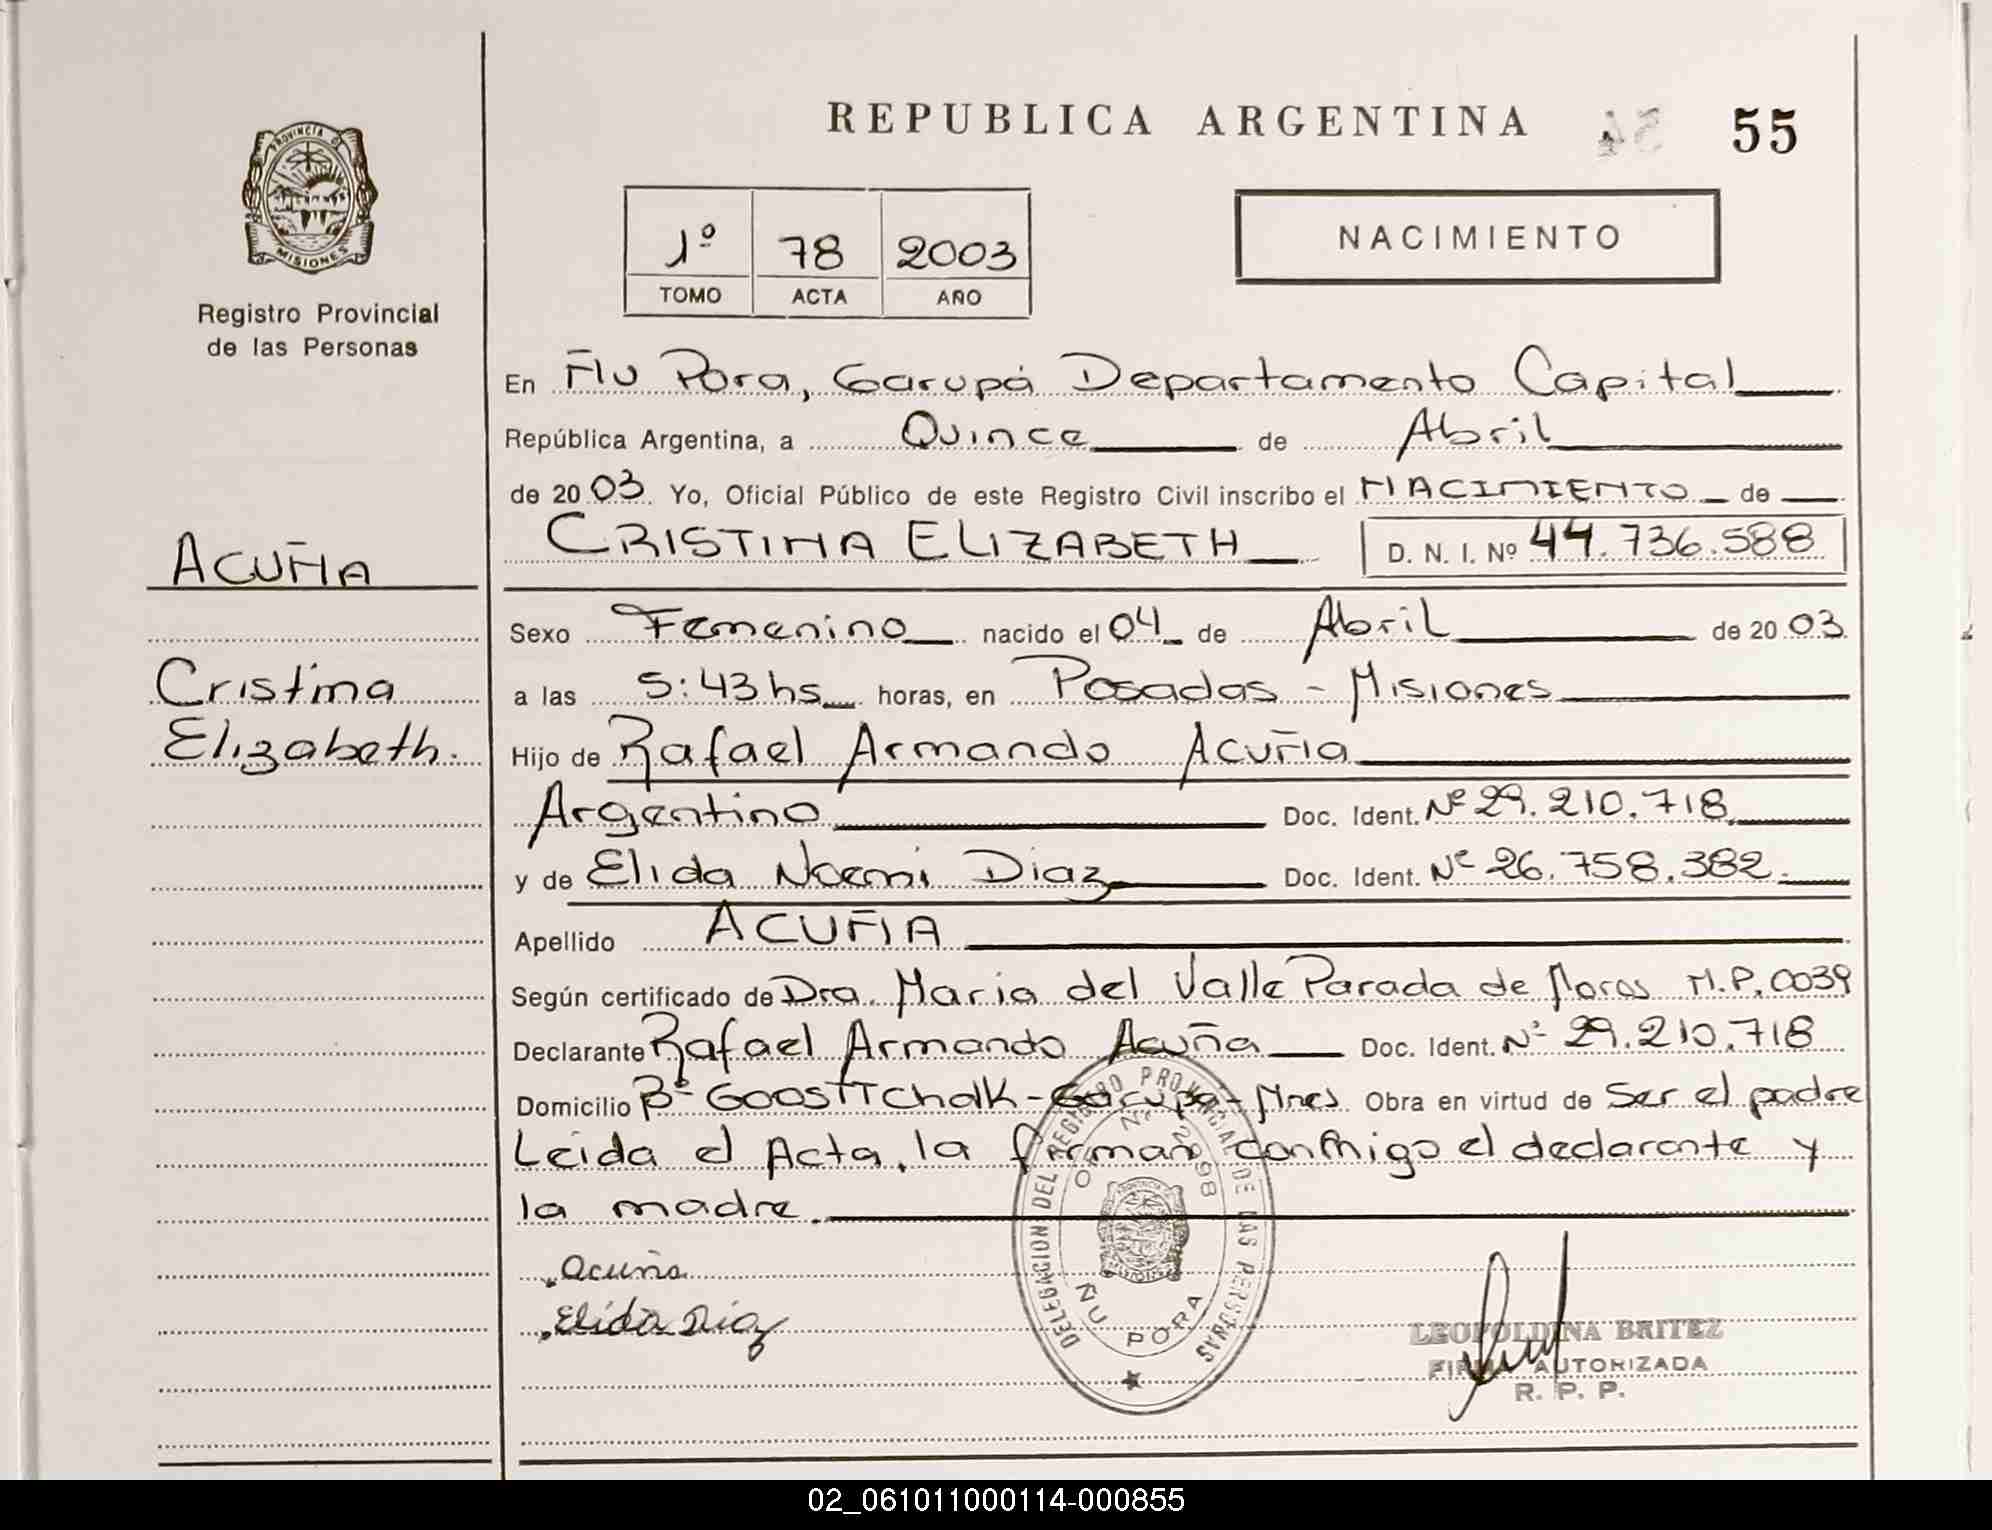 REPUBLICA ARGENTINA
55
PROVINCIA DE
MISIONES
Registro Provincial
de las Personas
1º 78 2003
TOMO ACTA AÑO
NACIMIENTO
En Ñu Pora, Garupá Departamento Capital
República Argentina, a Quince de Abril
de 2003 Yo, Oficial Público de este Registro Civil inscribo el NACIMIENTO de
ACUÑA
CRISTINA ELIZABETH D. N. I. Nº 44.736.588
Sexo Femenino nacido el 04 de Abril de 2003
Cristina
Elizabeth.
a las 5:43 hs horas, en Posadas - Misiones
Hijo de Rafael Armando Acuña
Argentino Doc. Ident. Nº 29.210.718
y de Elida Noemi Diaz Doc. Ident. Nº 26.758.382.
Apellido ACUÑA
Según certificado de Dra. Maria del Valle Parada de M.P. 0039
Declarante Rafael Armando Acuña Doc. Ident. Nº 29.210.718
Domicilio Bº GOOSTTChalK - Garupa - Mnes Obra en virtud de Ser el padre
Leida el Acta, la firman conmigo el declarante y
la madre.
Acuña
Elida Diaz
DELEGACION DEL REGISTRO PROVINCIAL DE LAS PERSONAS
Nº 2898
ÑU PORA
LEOPOLDINA BRITEZ
FIRMA AUTORIZADA
R. P. P.
02_061011000114-000855